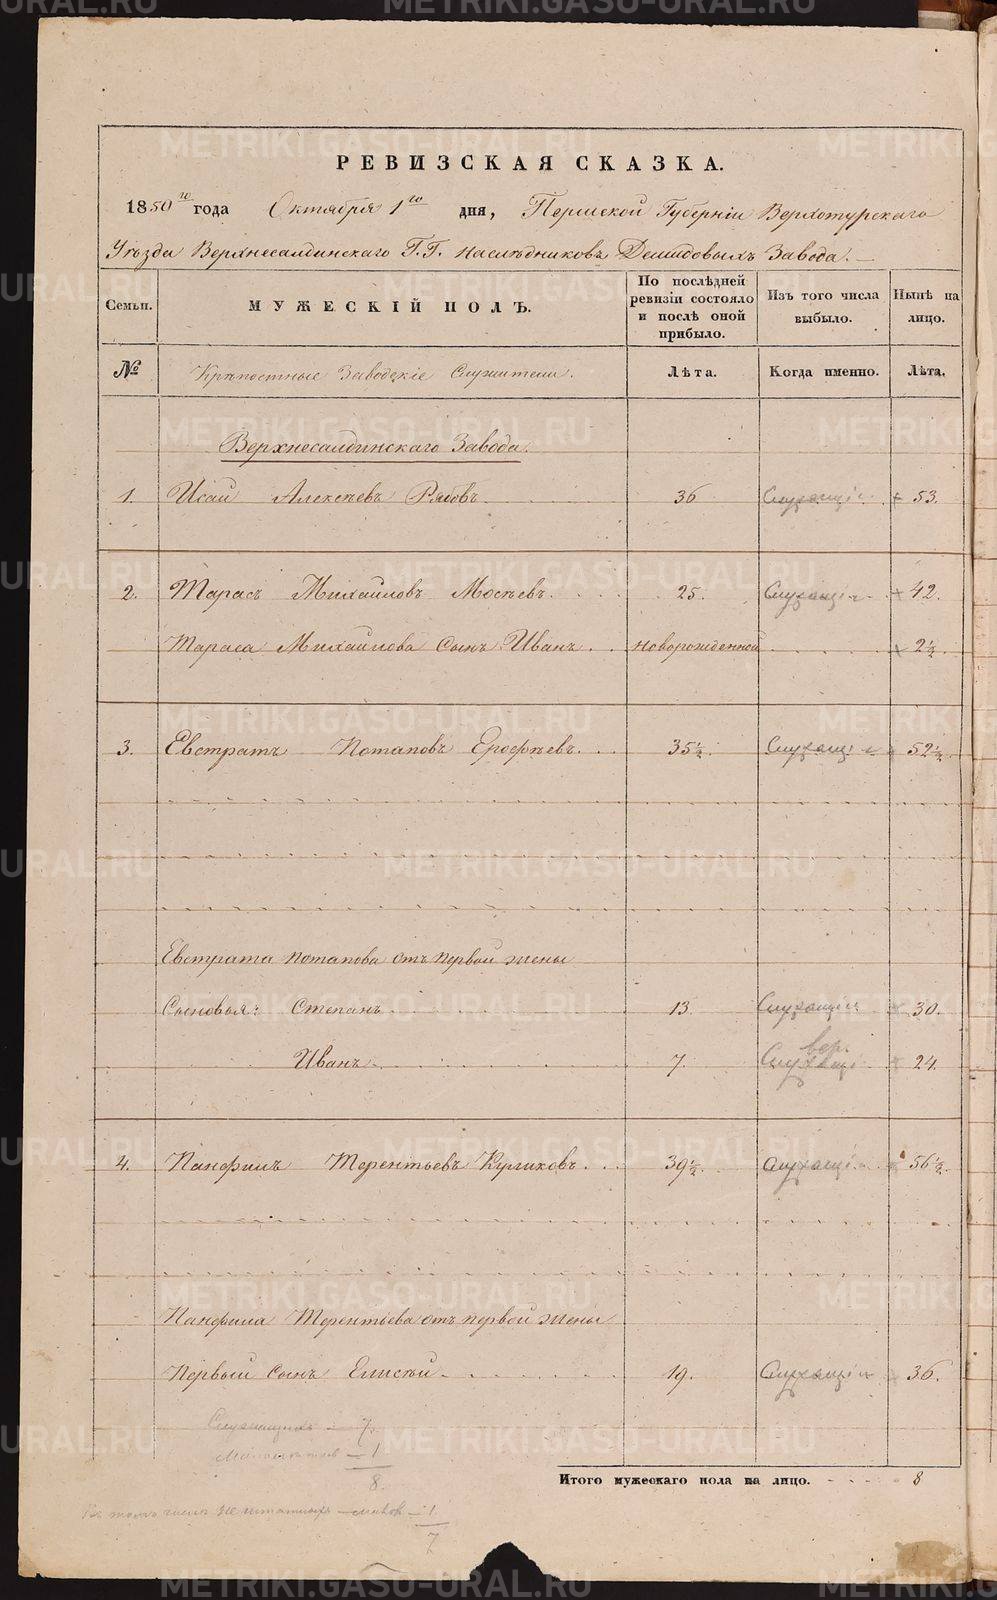 РЕВИЗСКАЯ СКАЗКА.
1850го года Октября 1го дня, Пермской Губерніи Верхотурскаго
Уѣзда Верхнесалдинскаго Г.Г. Наслѣдниковъ Демидовыхъ Завода.
Семьи. МУЖЕСКІЙ ПОЛЪ. По послѣдней ревизіи состояло и послѣ оной прибыло. Изъ того числа выбыло. Нынѣ на лицо.
№ Крѣпостные Заводскіе Служители. Лѣта. Когда именно. Лѣта.
Верхнесалдинскаго Завода.
1. Исаи Алексѣевъ Рябовъ 36 Служащіи + 53.
2. Тарасъ Михаиловъ Мосѣевъ 25. Служащіи + 42.
Тараса Михаилова Сынъ Иванъ новорожденной + 2½.
3. Евстратъ Потаповъ Ерофѣевъ 35½. Служащіи 52½.
Евстрата Потапова отъ первой жены
Сыновья: Степанъ 13 Служащіи 30.
вер.
Иванъ 7. Служащі 24.
4. Панфилъ Терентьевъ Куликовъ 39½. Служащіи 56½.
Панфила Терентьева отъ первой жены
Первый сынъ Елисѣй 19. Служащіи 36.
Служащихъ – 7.
Малолѣтовъ – 1
8.
Итого мужескаго пола на лицо. 8
Въ томъ числѣ 1
7
METRIKI.GASO-URAL.RU